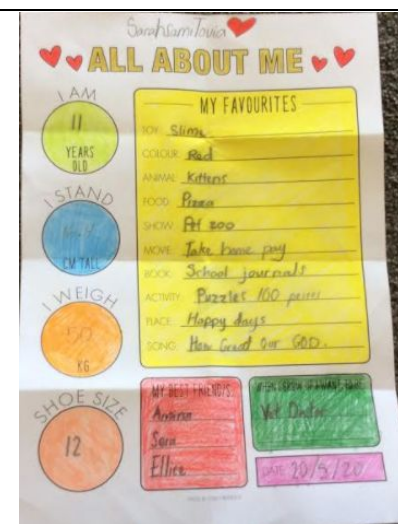 ALL ABOUT ME
I AM
11
YEARS
OLD
I STAND
CM TALL
I WEIGH
50
KG
SHOE SIZE
12
MY FAVOURITES
TOY: Slime
COLOUR: Red
ANIMAL: Kittens
FOOD: Pizza
SHOW: zoo
MOVIE: Take home pay
BOOK: School journals
ACTIVITY: Puzzles 100 pieces
PLACE: Happy days
SONG: How Great Our GOD.
MY BEST FRIEND/S:
Sara
Ellice
WHEN I GROW UP I WANT TO BE:
Vet Doctor
DATE: 20/5/20